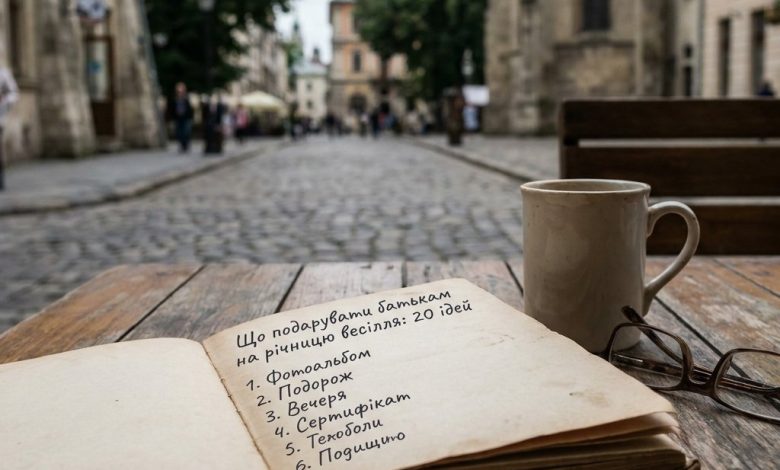 Що подарувати батькам
на річницю весілля: 20 ідей
1. Фотоальбом
2. Подорож
3. Вечеря
4. Сертифікат
5.
6.